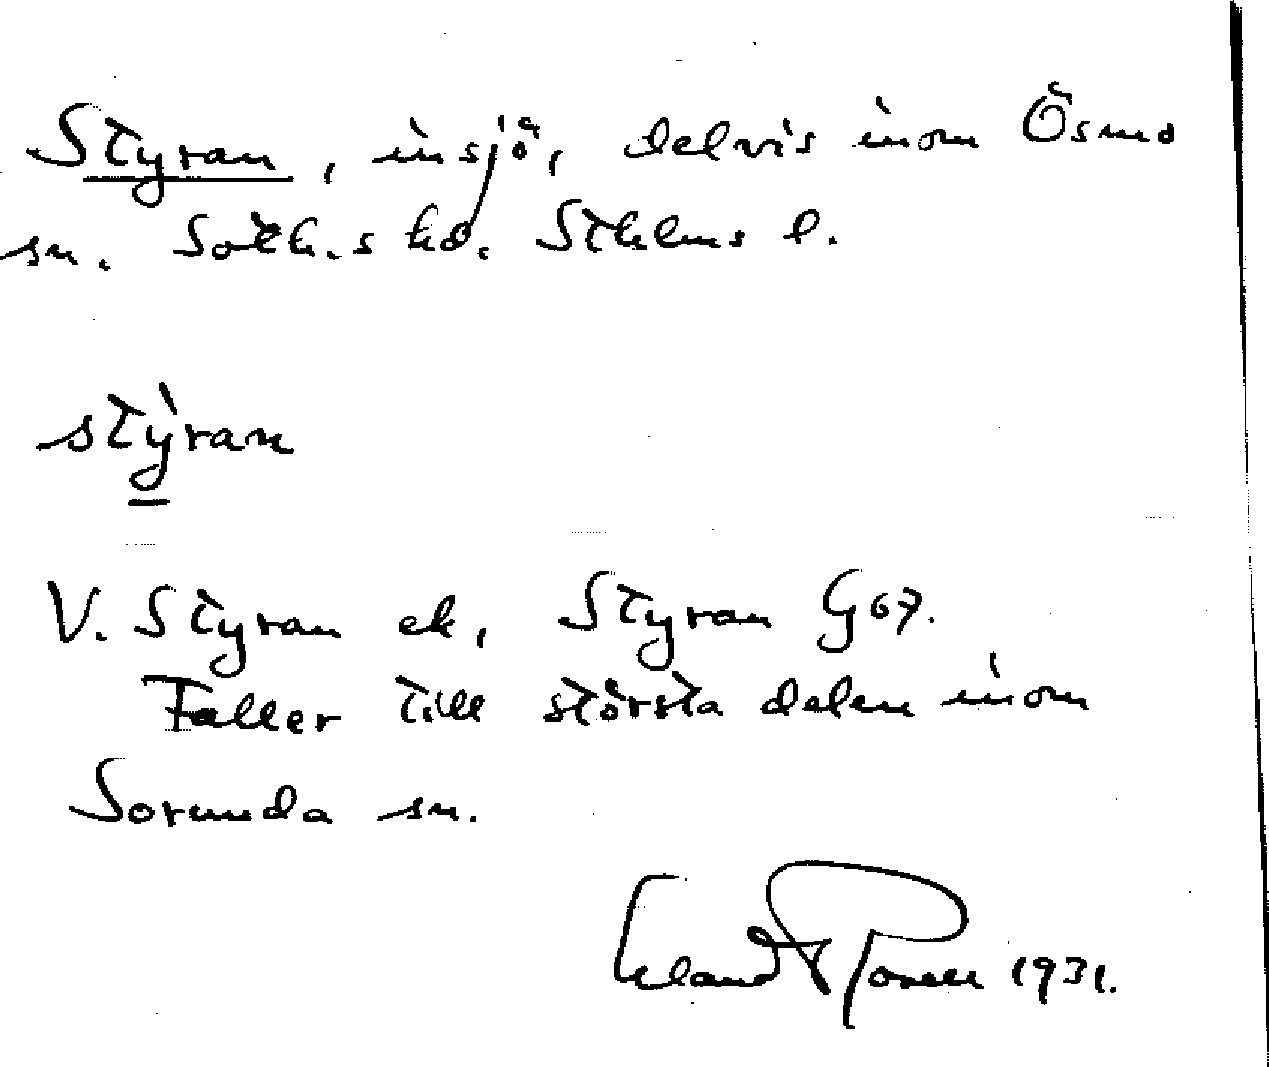 Styran, insjö, delvis inom Ösmo
sn. Soth.s hd. Sthlms l.
stýran
V. Styran ek, Styran G67.
Faller till största delen inom
Sorunda sn.
Erland Rosell 1931.